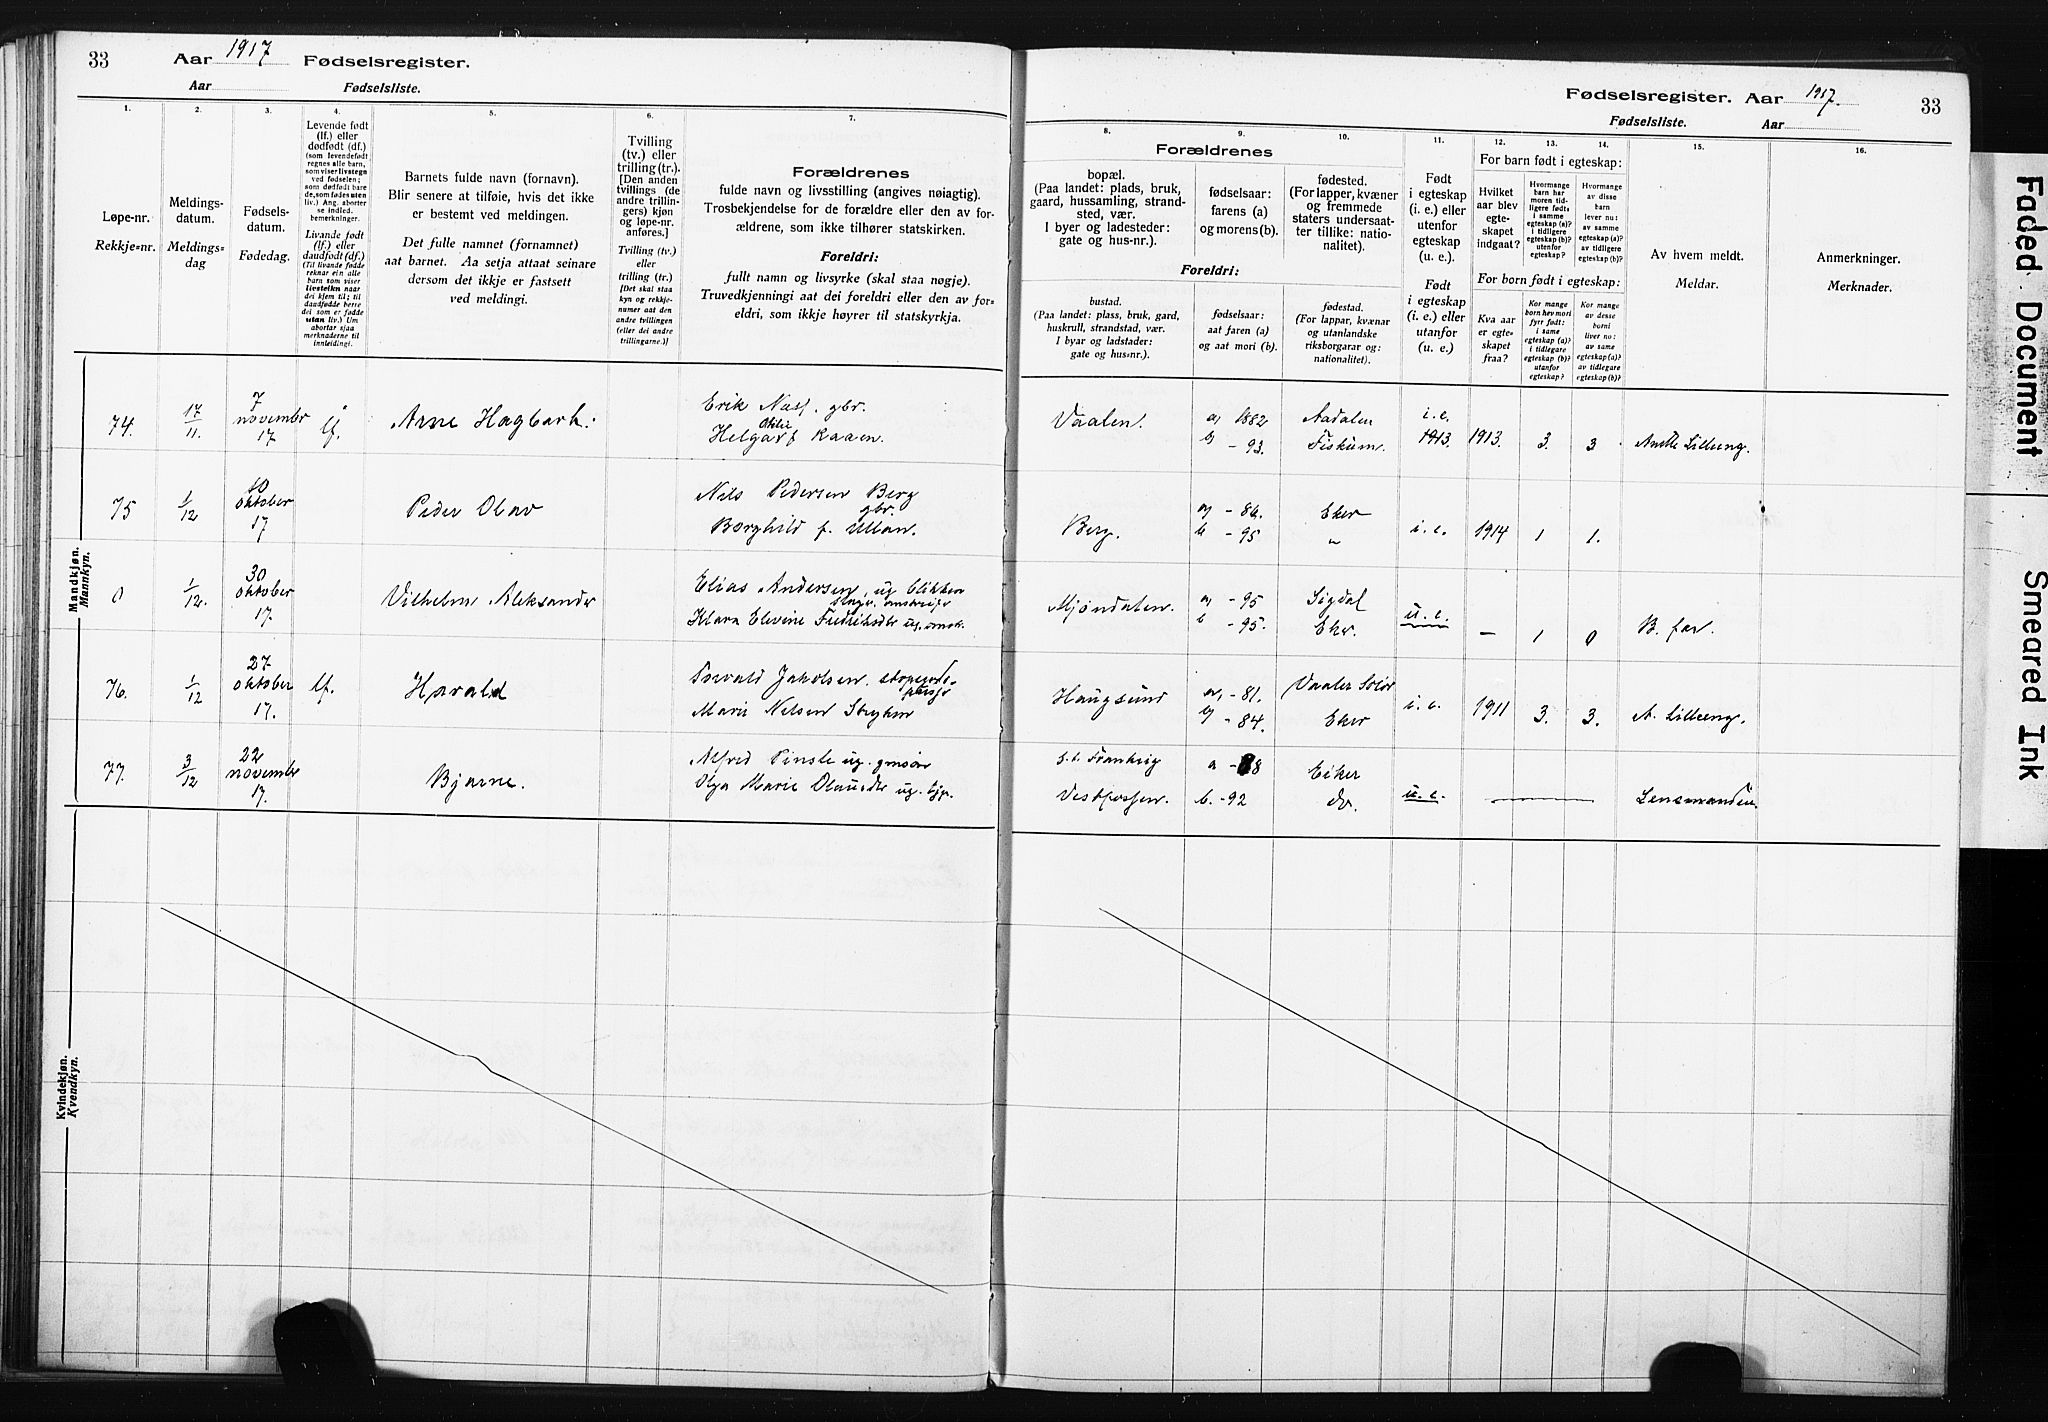 33
Aar 1917 Fødselsregister.
Aar Fødselsliste.
1.
2.
3.
4.
5.
6.
7.
Løpe-nr.
Rekkje=nr.
Meldings-
datum.
Meldings=
dag
Fødsels-
datum.
Fødedag.
Levende født
(lf.) eller
dødfødt (df.)
(som levendefødt
regnes alle barn,
som viser livstegn
ved fødselen;
som dødfødt bare
de, som fødes uten
liv.) Ang. aborter
se indled.
bemerkninger.
Livande født
(lf.) eller
daudfødt (df.)
(Til livande fødde
reknar ein alle
barn som viser
livsteikn naar
dei kjem til; til
daudfødde berre
dei som er fødde
utan liv.) Um
abortar sjaa
merknaderne til
innleidingi.
Barnets fulde navn (fornavn).
Blir senere at tilføie, hvis det ikke
er bestemt ved meldingen.
Det fulle namnet (fornamnet)
aat barnet. Aa setja attaat seinare
dersom det ikkje er fastsett
ved meldingi.
Tvilling
(tv.) eller
trilling (tr.).
[Den anden
tvillings (de
andre trillin-
gers) kjøn
og løpe-nr.
anføres.]
Tvilling (tv.)
eller
trilling (tr.)
[Det skal staa
kyn og rekkje-
numer aat den
andre tvillingen
(eller dei andre
trillingarne.)]
Forældrenes
fulde navn og livsstilling (angives nøiagtig).
Trosbekjendelse for de forældre eller den av for-
ældrene, som ikke tilhører statskirken.
Foreldri:
fullt namn og livsyrke (skal staa nøgje).
Truvedkjenningi aat dei foreldri eller den av for=
eldri, som ikkje høyrer til statskyrkja.
Mandkjøn.
Mannkyn.
74. 17/11. 7 november 17 lf. Arne Hagbart. Erik Næss. gbr.
Helga f. Kaaen.
75 1/12 10 oktober 17 Peder Olav Nils Pedersen Berg
gbr.
Borghild f. Ullan.
0 1/12. 30 oktober 17. Vilhelm Aleksander Elias Andersen, ug blikken
Klara Elevine Fredriksdtr ug.
76. 1/12 27 oktober 17. lf. Harald Torvald Jakobsen,
Marie Nilsen
77. 3/12 22 november 17. Bjarne. Alfred Pinsle ug. grnsør
Olga Marie Olausdtr ug. tjp.
Kvindekjøn.
Kvendkyn.
Fødselsregister. Aar 1917. 33
Fødselsliste. Aar
8.
9.
10.
11.
12.
13.
14.
15.
16.
Forældrenes
bopæl.
(Paa landet: plads, bruk,
gaard, hussamling, strand-
sted, vær.
I byer og ladesteder:
gate og hus-nr.).
fødselsaar:
farens (a)
og morens (b).
fødested.
(For lapper, kvæner
og fremmede
staters undersaat-
ter tillike: natio-
nalitet).
Foreldri:
bustad.
(Paa landet: plass, bruk, gard,
huskrull, strandstad, vær.
I byar og ladstader:
gate og hus=nr.).
fødselsaar:
aat faren (a)
og aat mori (b).
fødestad.
(For lappar, kvænar
og utanlandske
riksborgarar og:
nationalitet).
Født
i egteskap
(i. e.) eller
utenfor
egteskap
(u. e.).
Født
i egteskap
(i. e.) eller
utanfor
(u. e.)
For barn født i egteskap:
Hvilket
aar blev
egte-
skapet
indgaat?
Hvormange
barn har
moren tid-
ligere født:
i samme
egteskap (a)?
i tidligere
egteskap (b)?
utenfor
egteskap?
Hvormange
av disse
barn
lever nu:
av samme
egteskap (a)?
av tidligere
egteskap (b)?
For barn født i egteskap:
Kva aar
er egte-
skapet
fraa?
Kor mange
born hev mori
fyrr født:
i same
egteskap (a)?
i tidlegare
egteskap (b)?
utanfor
egteskap?
Kor mange
av desse
borni
liver no:
av same
egteskap (a)?
av tidlegare
egteskap (b)?
Av hvem meldt.
Meldar.
Anmerkninger.
Merknader.
Vaalen. a, 1882 Aadalen i. e.
b - 93. Fiskum. 1913. 1913. 3. 3 Anette Lilleeng.
Berg. a, - 86. Eker i. e. 1914 1 1.
b - 95 "
Mjøndalen. a, - 95 Sigdal u. e.
b - 95. Eker. — 1 0 B. far.
Haugsund a, - 81. Vaaler Solør i. e. 1911 3. 3. A. Lilleeng.
b, - 84. Eker
a - 88 Eiker
Vestfossen. b. - 92 do. u. e. — Lensmanden.
Faded Document
Smeared Ink